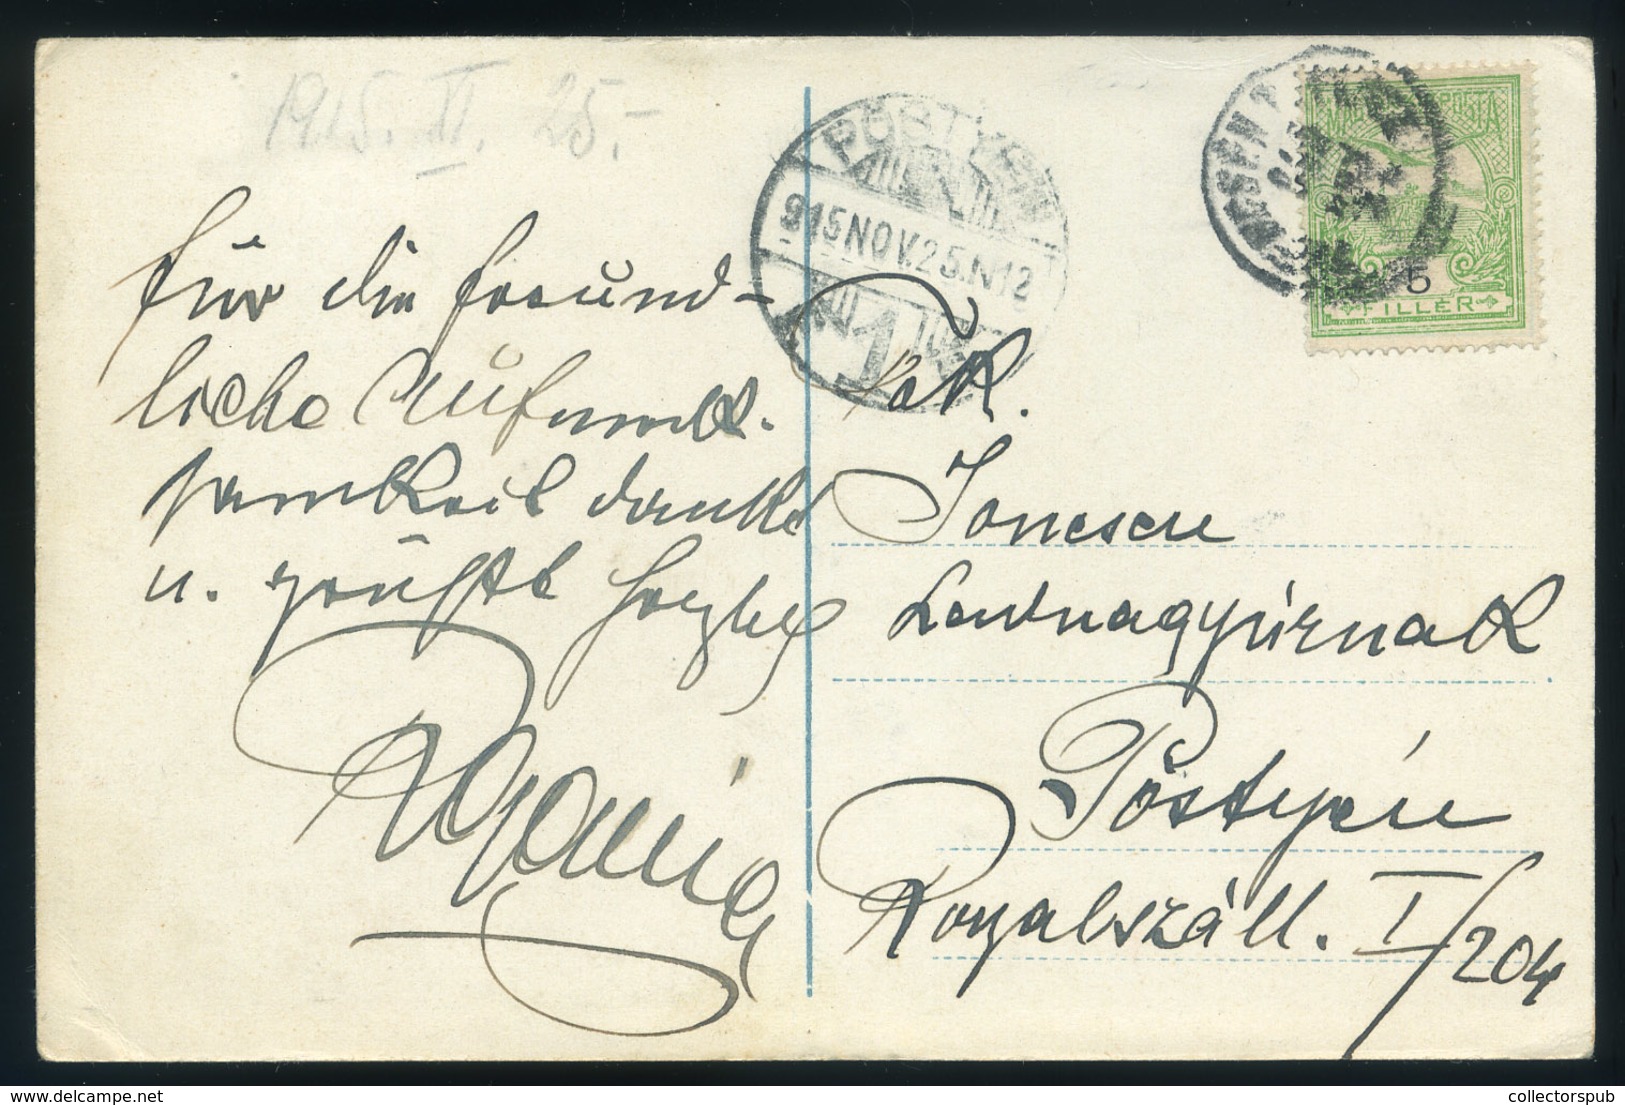 1915. XI. 25.-
für die freund-
liche Aufmerk-
samkeit dankt
u. grüßt herzlich
PÖSTYÉN
915 NOV. 25. N 12
1
MAGYAR POSTA
5
FILLÉR
Tek.
Jonescu
Levnagyúrnak
Pöstyén
Royalszáll. I/204
collectorspub